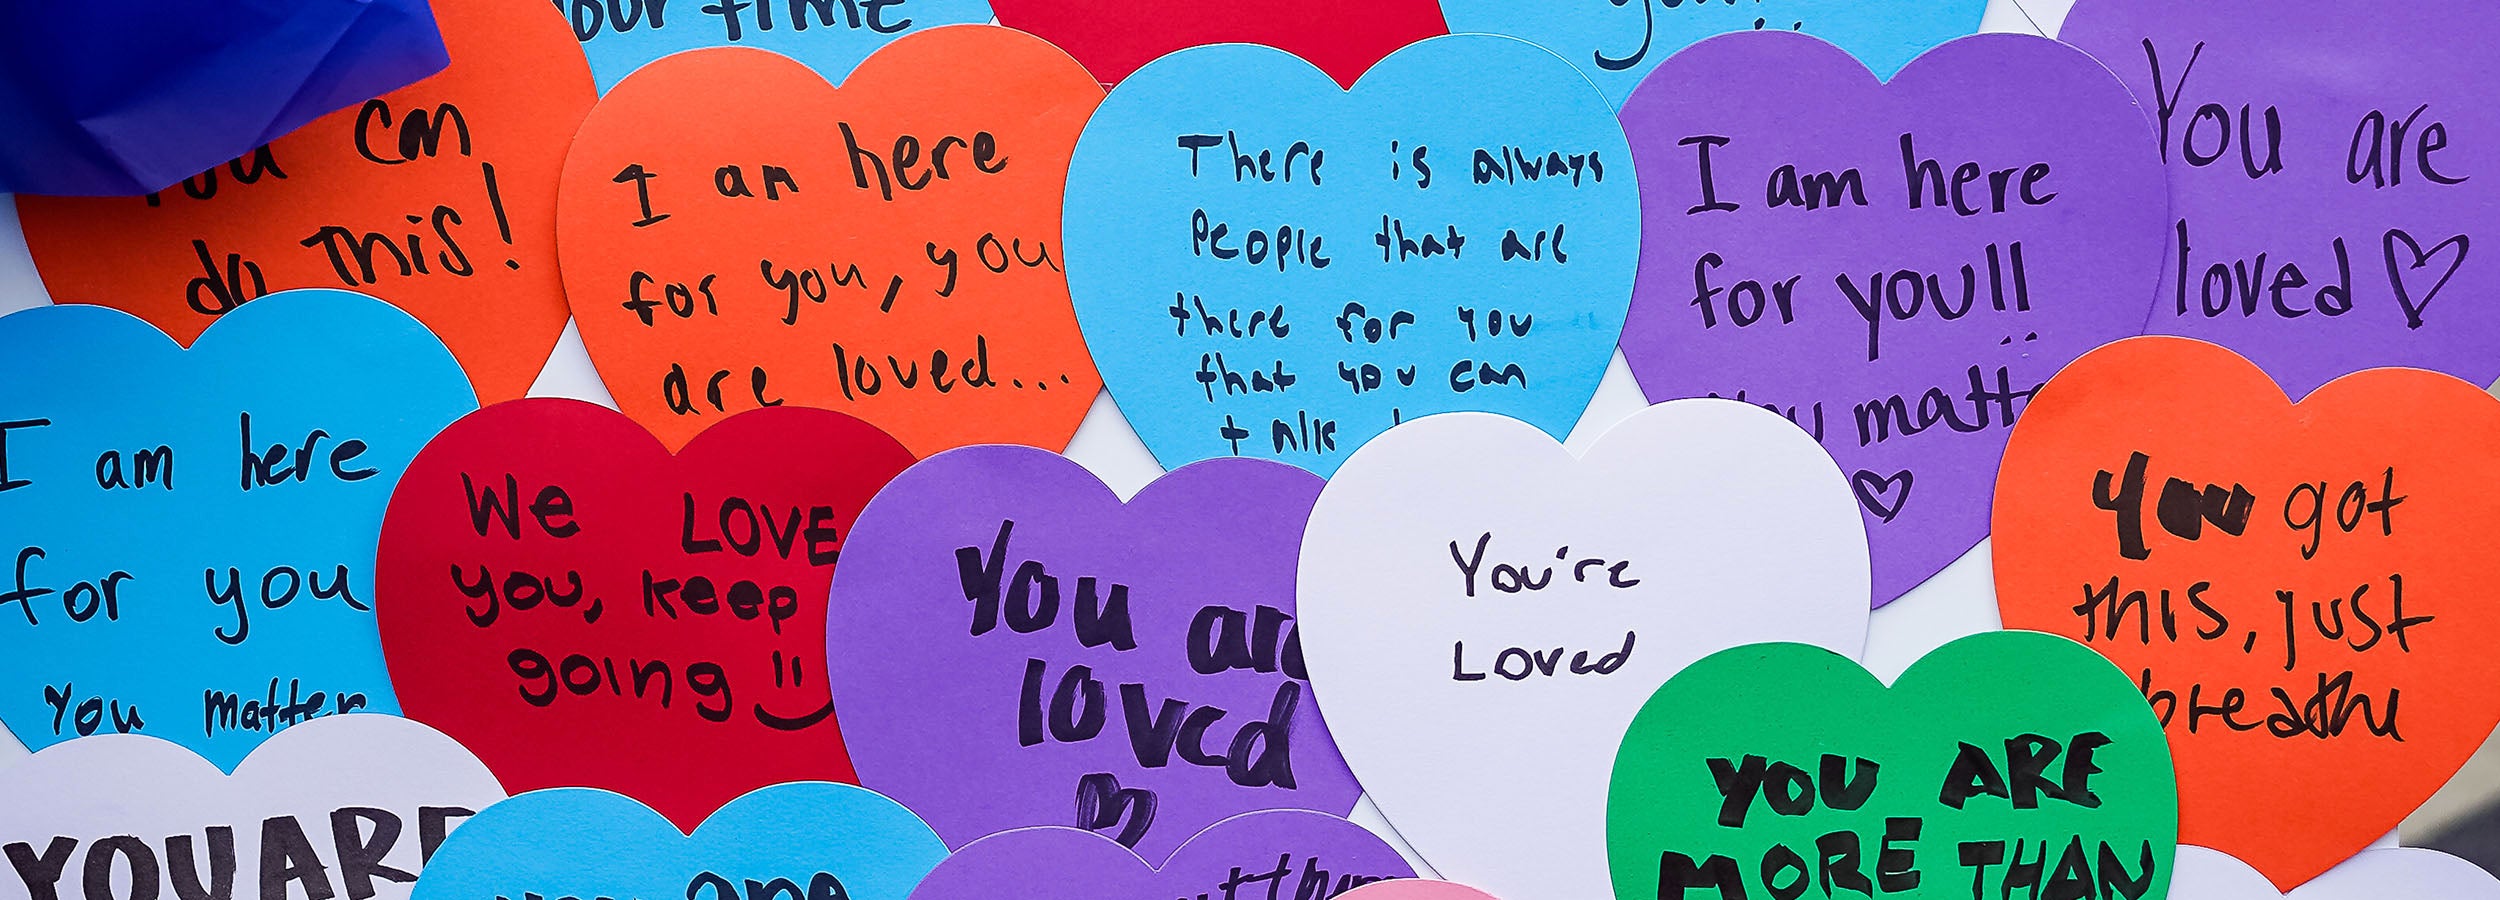 your time
can
do this!
I am here
for you, you
are loved...
There is always
people that are
there for you
that you can
talk
I am here
for you!!
you matter
You are
loved
I am here
for you
You matter
We LOVE
you, keep
going
You are
loved
You're
Loved
you got
this, just
breathe
YOU ARE
MORE THAN
YOU ARE
you are